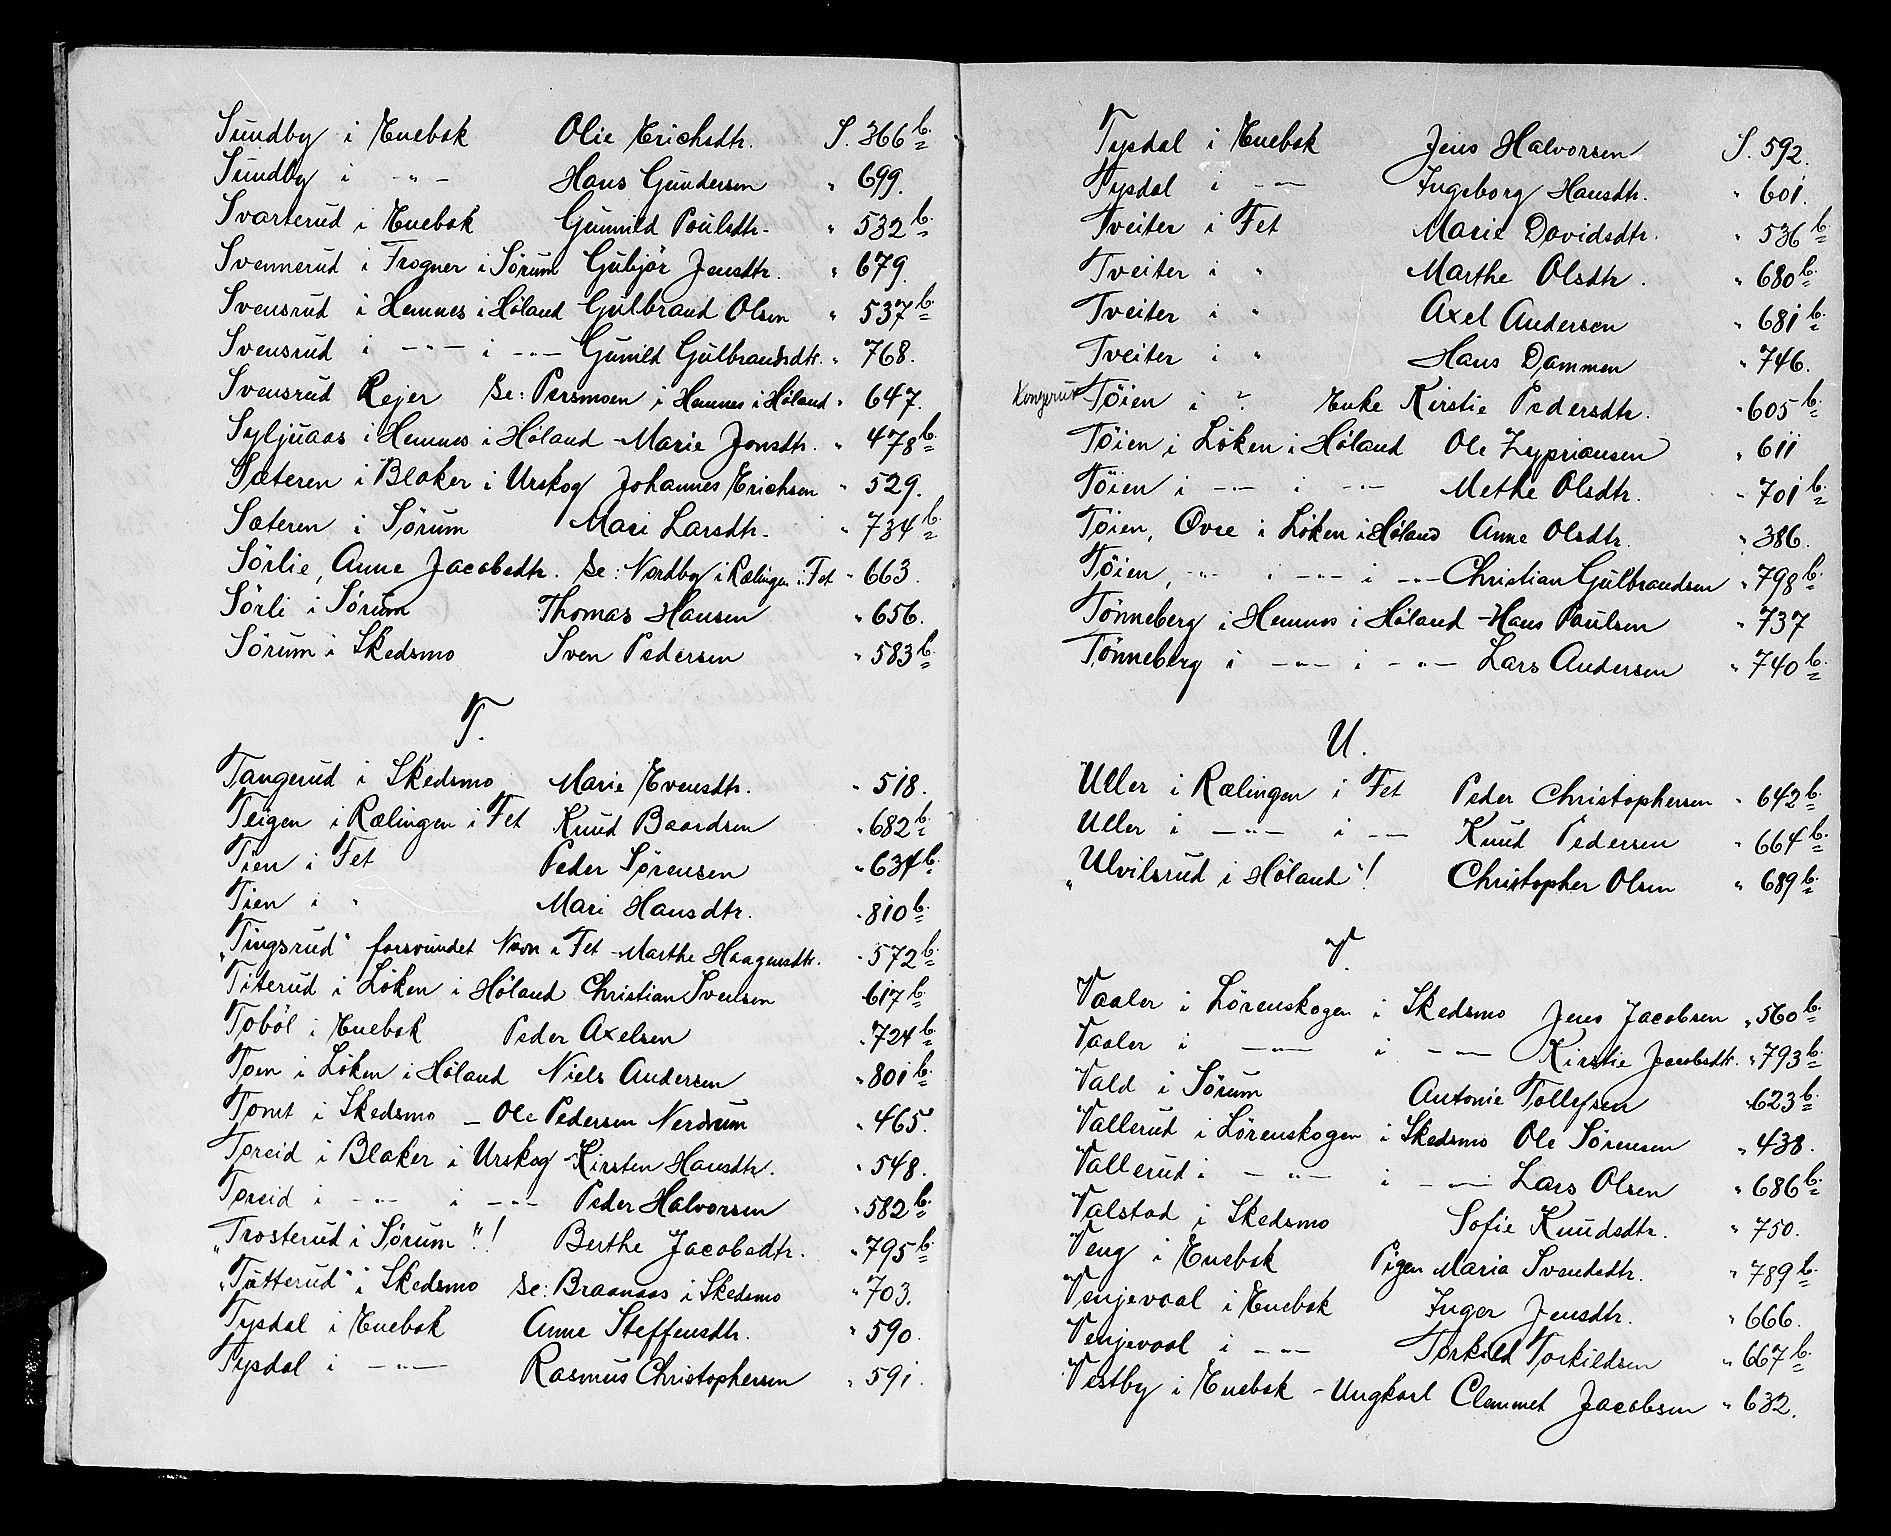 Sundby i Enebak Olie Erichsdtr. S. 366 b.
Sundby i - " - Hans Gundersen " 699.
Svarterud i Enebak Gunnild Poulsdtr. " 532 b.
Svennerud i Frogner i Sörum Gubjör Jensdtr. " 679.
Svensrud i Hemnes i Höland Gulbrand Olsen " 537 b.
Svensrud i - " - i - " - Gunild Gulbrandsdtr. " 768.
Svensrud Rejer Se: Persmoen i Hemnes i Höland " 647.
Syljuaas i Hemnes i Höland - Marie Jonsdtr. " 478 b.
Sæteren i Blaker i Urskog Johannes Erichsen " 529.
Sæteren i Sörum Mari Larsdtr. " 734 b.
Sörlie, Anne Jacobsdtr. Se: Nordby i Rælingen i Fet " 663.
Sörli i Sörum Thomas Hansen " 656.
Sörum i Skedsmo Sven Pedersen " 583 b.
T.
Tangerud i Skedsmo Marie Evensdtr. " 518.
Teigen i Rælingen i Fet Knud Baardsen " 682 b.
Tien i Fet Peder Sörensen " 634 b.
Tien i " Mari Hansdtr. " 810 b.
"Tingsrud" forsvundet Navn i Fet - Marthe Haagensdtr. " 572 b.
Titerud i Löken i Höland Christian Svensen 617 b.
Toböl i Enebak Peder Axelsen " 724 b.
Toen i Löken i Höland Niels Andersen " 801 b.
Tomt i Skedsmo - Ole Pedersen Nerdrum " 465.
Toreid i Blaker i Urskog - Kirsten Hansdtr. " 548.
Toreid i - " - i - " - Peder Halvorsen " 582 b.
"Trosterud i Sörum"! Berthe Jacobsdtr. " 795 b.
"Tutterud" i Skedsmo Se: Braanaas i Skedsmo " 703.
Tysdal i Enebak Anne Steffensdtr. " 590.
Tysdal i - " - Rasmus Christophersen " 591.
Tysdal i Enebak Jens Halvorsen S. 592.
Tysdal i - " - Ingeborg Hansdtr. " 601.
Tveiter i Fet Marie Davidsdtr. " 536 b.
Tveiter i " Marthe Olsdtr. " 680 b.
Tveiter i " Axel Andersen " 681 b.
Tveiter i " Hans Dammen " 746.
Töien i ? Enke Kirstie Pedersdtr. " 605 b.
Töien i Löken i Höland Ole Zypriansen " 611
Töien i - " - i - " - Methe Olsdtr. " 701 b.
Töien, Övre i Löken i Höland Anne Olsdtr. " 386.
Töien, - " - i - " - i - " - Christian Gulbrandsen " 798 b.
Tönneberg i Hemnes i Höland - Hans Paulsen " 737
Tönneberg i - " - i - " - Lars Andersen " 740 b.
U.
Uller i Rælingen i Fet Peder Christophersen " 642 b.
Uller i - " - i - " - Knud Pedersen " 664 b.
"Ulvilsrud i Höland"! Christopher Olsen " 689 b.
V.
Vaaler i Lörenskogen i Skedsmo Jens Jacobsen " 560 b.
Vaaler i - " - i - " - Kirstie Jacobsdtr. " 793 b.
Vald i Sörum Antonie Tollefsen " 623 b.
Vallerud i Lörenskogen i Skedsmo Ole Sörensen " 438.
Vallerud i - " - i - " - Lars Olsen " 686 b.
Valstad i Skedsmo Sofie Knudsdtr. " 750.
Veng i Enebak Pigen Maria Svendsdtr. " 789 b.
Venjevaal i Enebak Inger Jensdtr. " 666.
Venjevaal i - " - Torkild Torkildsen " 667 b.
Vestby i Enebak - Ungkarl Clemmet Jacobsen " 632.